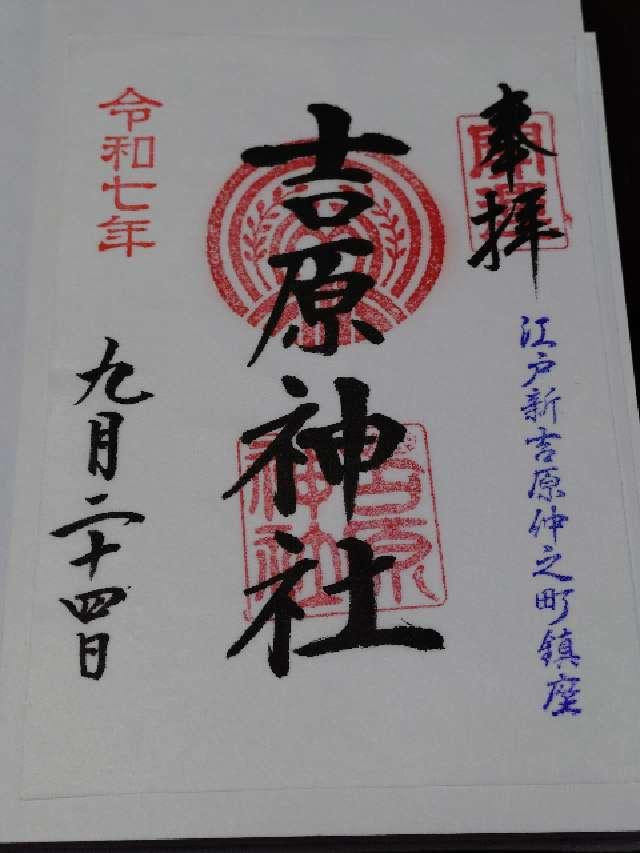 奉拝
開運
江戸新吉原仲之町鎮座
吉原神社
吉原
神社
令和七年
九月二十四日